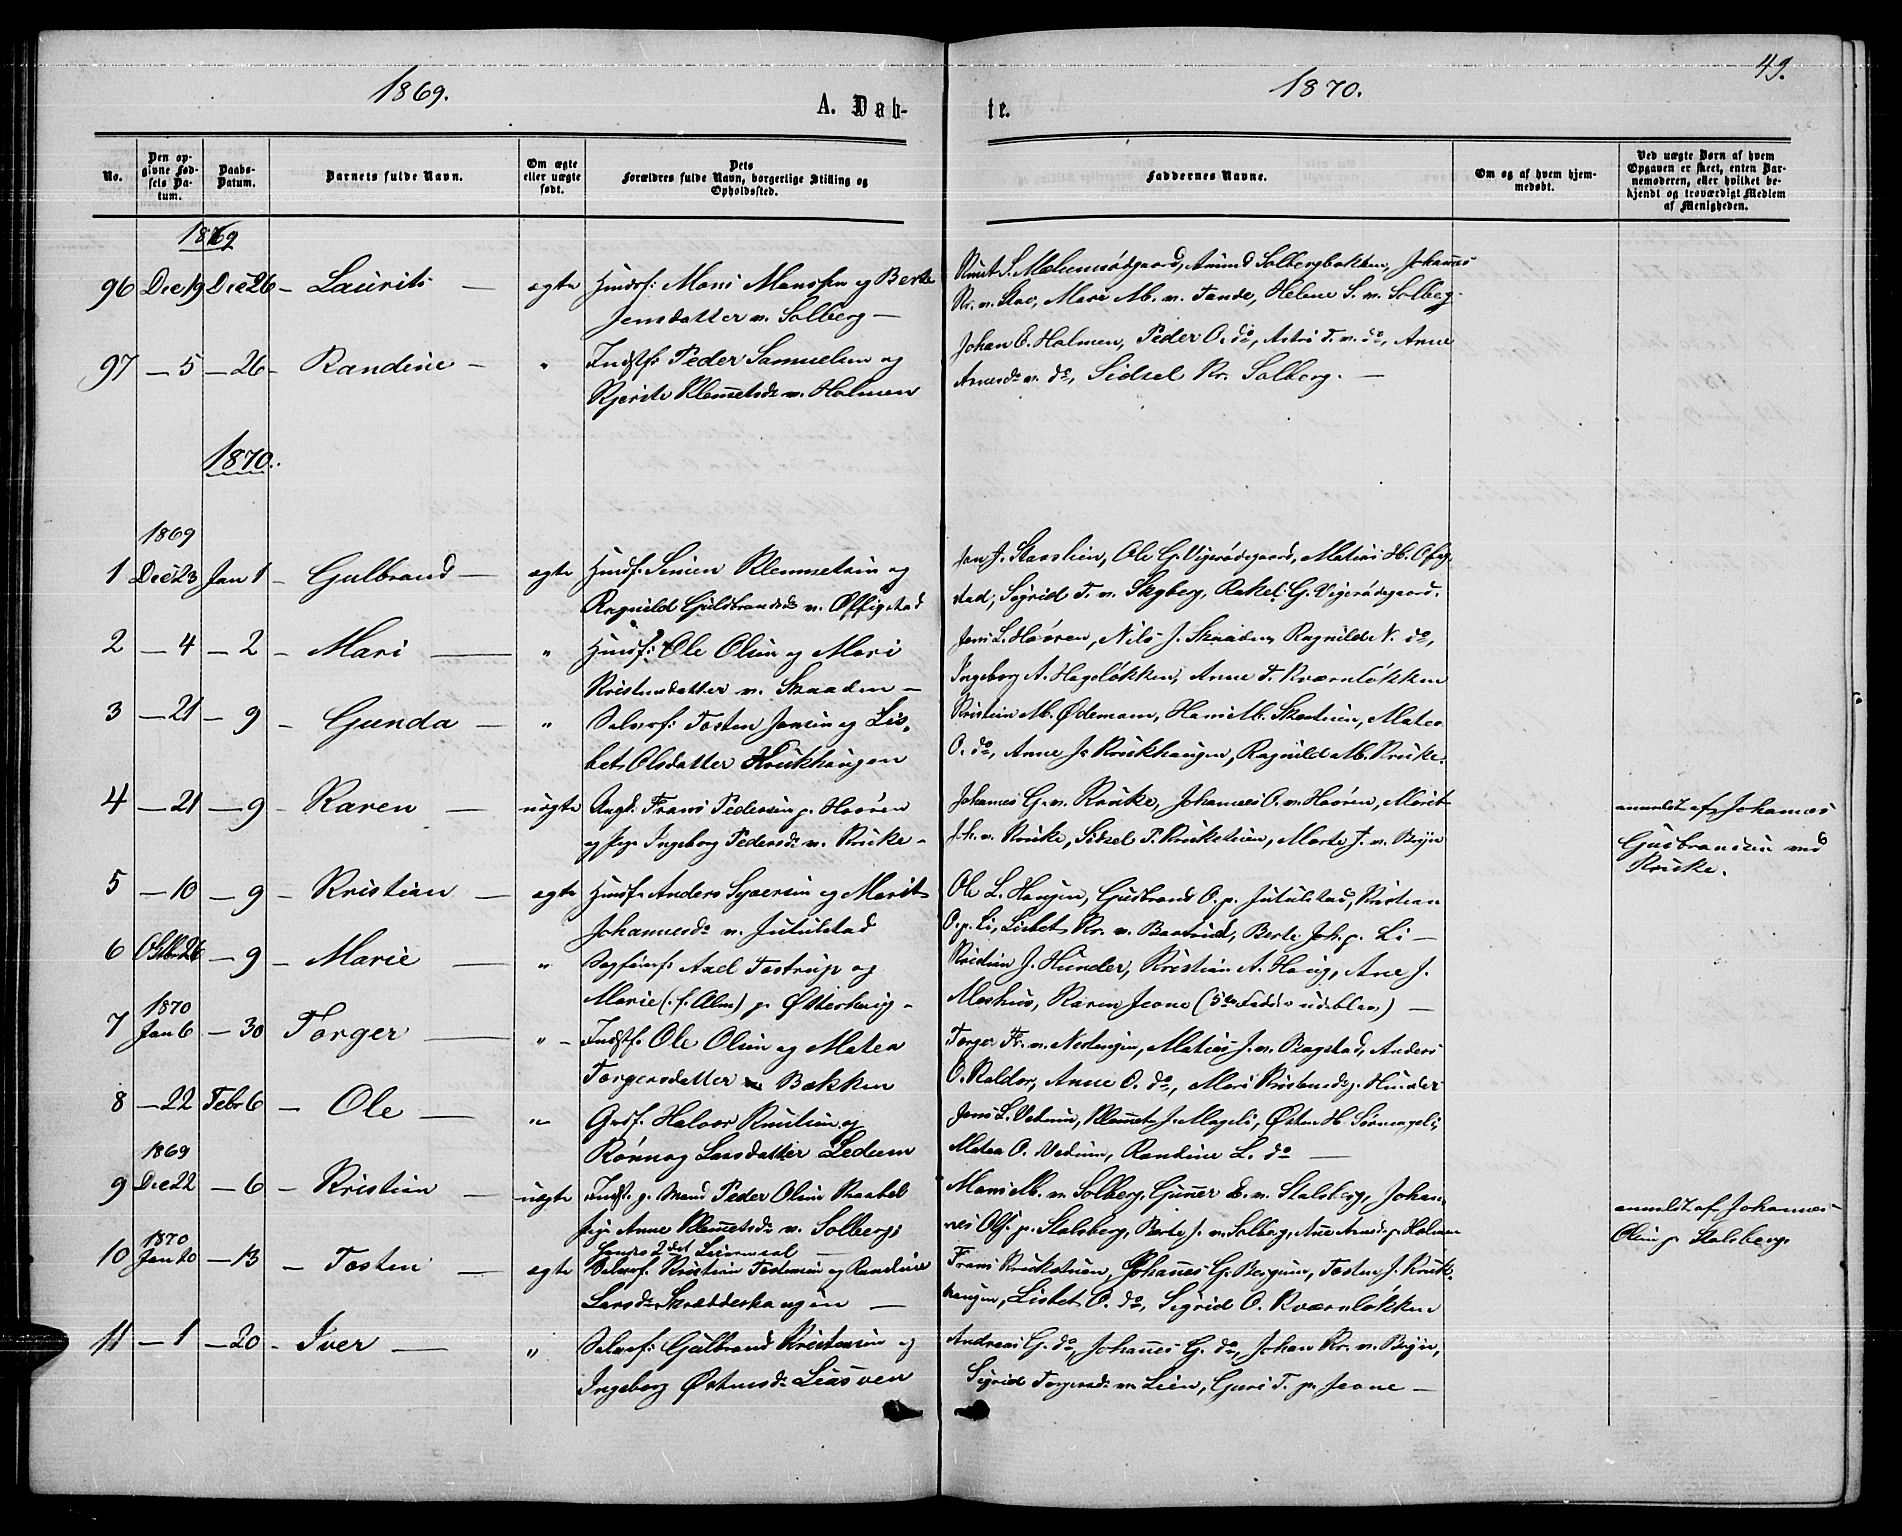 49.
1869.
1870.
A. Døb-
te.
No.
Den op-
givne Fød-
sels Da-
tum.
Daabs-
Datum.
Barnets fulde Navn.
Om ægte
eller uægte
født.
Dets
Forældres fulde Navn, borgerlige Stilling og
Opholdssted.
Faddernes Navne.
Om og af hvem hjem-
medøbt.
Ved uægte Børn af hvem
Opgaven er skeet, enten Bar-
nemoderen, eller hvilket be-
kjendt og troværdigt Medlem
af Menigheden.
1869
96 Dec 19 Dec 26 - Laurits — ægte Huusf: Mons Monssen og Berte
Jensdatter v. Solberg —
Knut S. Melumsødegaard, Amund Solbergbakken, Johannes
Kr. v. Stav, Mari M. v. Tande, Helene S. v. Solberg
97 — 5 — 26 - Randine — " Indstf: Peder Samuelsen og
Kjersti Klemetsdr v. Holmen
Johan E. Holmen, Peder O. do, Astri T. v. do, Anne
Arnesdr v. do, Sidsel Kr. Solberg. —
1870.
1869
1 Dec 23 Jan 1 - Gulbrand — ægte Huusf: Simen Klemmetsen og
Ragnild Guldbrandsdr v. Offigstad
Jon J. Stavslien, Ole G. Vigerødegaard, Matias H. Offig
stad, Sigrid T. v. Skyberg, Rakel G. Vigerødegaard.
2 — 4 — 2 - Mari — " Huusf: Ole Olsen og Mari
Kristensdatter v. Skaaden —
Jens L. Haaren, Nils J. Skaaden, Ragnilde N. do,
Ingeborg A. Hageløkken, Anne T. Kværnløkken
3 — 21 — 9 - Gunda — " Selverf: Tosten Jensen og Lis-
bet Olsdatter Krukhaugen
Kristian M. Ødemann, Hans M. Skartlien, Matea
O. do, Anne J. Krukhaugen, Ragnild M. Kruke.
4 — 21 — 9 - Karen — uægte Ungk. Frans Pedersen p. Haaren
og pige Ingeborg Pedersdr v. Kruke -
Johannes G. v. Kruke, Johannes O. v. Haaren, Marit
J. v. Kruke, Sidsel P. Krukstuen, Marte J. v. Bryn
anmeldt af Johannes
Gulbrandsen ved
Kruke.
5 — 10 — 9 - Kristian — ægte Huusf. Anders Syversen og Marit
Johannesdr v. Jutulstad
Ole L. Haugen, Gudbrand O. p. Jutulstad, Kristian
O. p. Li, Lisbet Kr. v. Baarud, Berte Joh. p. Li —
6 Oktbr 26 — 9 - Marie — " Sagførerf: Axel Tostrup og
Marie (f. Alm) p. Østerhaug -
Kristian J. Hunder, Kristian A. Haug, Ane J.
Moshus, Karen Jeone (5te Fadder udeblev) —
1870
7 Jan 6 — 30 Torger — " Indstf: Ole Olsen og Matea
Torgersdatter v. Bakken
Torger Fr. v. Nertengen, Matias J. v. Bragstad, Anders
O. Kaldor, Anne O. do, Mari Kristensdr p. Hunder
8 — 22 Febr 6 - Ole — " Gaardf. Halvor Knutsen og
Rønnog Larsdatter Ledum
Jens L. Vedum, Klemet J. Mageli, Østen H. Sørmageli,
Matea O. Vedum, Randine L. do —
1869
9 Dec 22 — 6 - Kristian — uægte Indst. g. Mand Peder Olsen Kaabel
pige Anne Klemetsdr v. Solberg:
Hendes 2det Leiermaal
Mons M. v. Solberg, Gunner E. v. Stalsberg, Johan-
nes Ols. p. Stalsberg, Berte J. v. Solberg, Ane Arnesdr p. Holmen
anmeldt af Johannes
Olsen p. Stalsberg.
1870
10 Jan 20 — 13 - Tosten — ægte Selverf. Kristian Tostensen og Randine
Larsdr Skrædderhaugen —
Frans Krukstuen, Johannes G. Bergum, Tosten J. Kruk-
haugen, Lisbet O. do, Sigrid O. Kværnløkken
11 — 1 — 20 - Iver — " Selverf: Gulbrand Kristensen og
Ingeborg Østensdr Liasveen
Andreas G. do, Johannes G. do, Johan Kr. v. Bryn,
Sigrid Torgersdr v. Lien, Guri T. p. Jeone —